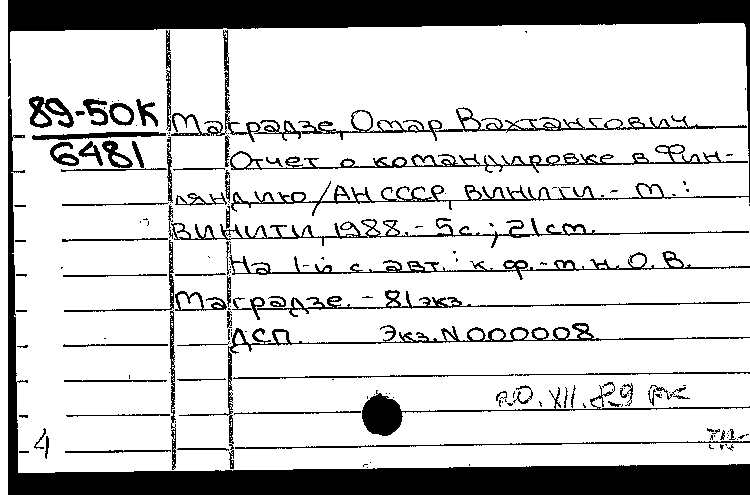 89-50К
6481
Маградзе, Омар Вахтангович.
Отчет о командировке в Фин-
ляндию/АН СССР, ВИНИТИ. - М.:
ВИНИТИ, 1988. - 5с.; 21см.
На 1-й с. авт.: к.ф.-м.н. О.В.
Маградзе. - 81экз.
ДСП. Экз. N000008
20.XII.89
4